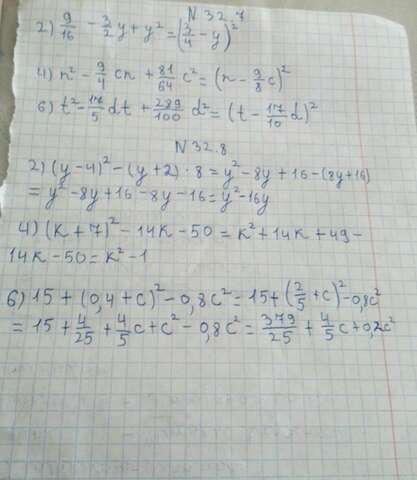 N 32.7
2) 9/16 - 3/2 y + y² = (3/4 - y)²
4) n² - 9/4 cn + 81/64 c² = (n - 9/8 c)²
6) t² - 17/5 dt + 289/100 d² = (t - 17/10 d)²
N 32.8
2) (y-4)² - (y+2) · 8 = y² - 8y + 16 - (8y+16)
= y² - 8y + 16 - 8y - 16 = y² - 16y
4) (k+7)² - 14k - 50 = k² + 14k + 49 -
14k - 50 = k² - 1
6) 15 + (0,4 + c)² - 0,8c² = 15 + (2/5 + c)² - 0,8c²
= 15 + 4/25 + 4/5 c + c² - 0,8c² = 379/25 + 4/5 c + 0,2c²